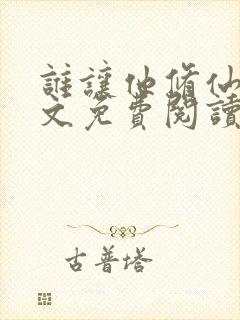 誰讓他修仙
文免費閱讀
古普塔